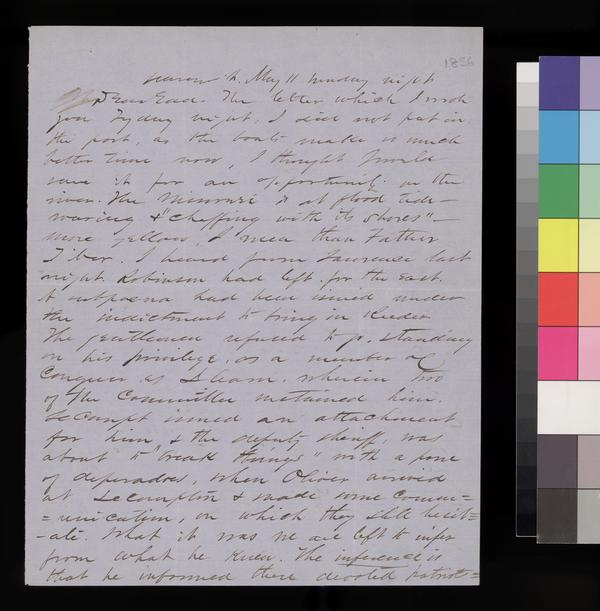 1856
May 11 Sunday night
Dear Edd. The letter which I wrote
you Fryday night, I did not put in
the post, as the boats make so much
better time now, I thought I would
save it for an opportunity on the
river. The Missouri is at flood tide—
roaring & "chaffing with its shores"—
more yellow, I mean than Father
Tiber. I heard from Lawrence last
night. Robinson had left for the East.
A subpoena had been issued under
the indictment to bring in Reeder
The gentleman refused to go, standing
on his privilege, as a member of
Congress as I learn. wherein two
of the Committee sustained him.
Lecompt issued an attachment
for him & the deputy sheriff, was
about to "break things" with a posse
of desperados, when Oliver arrived
at Lecompton & made some commu=
=nication, on which they still hesit=
-ate. What it was we are left to infer
from what he knew. The inference is
that he informed these devoted patriot=